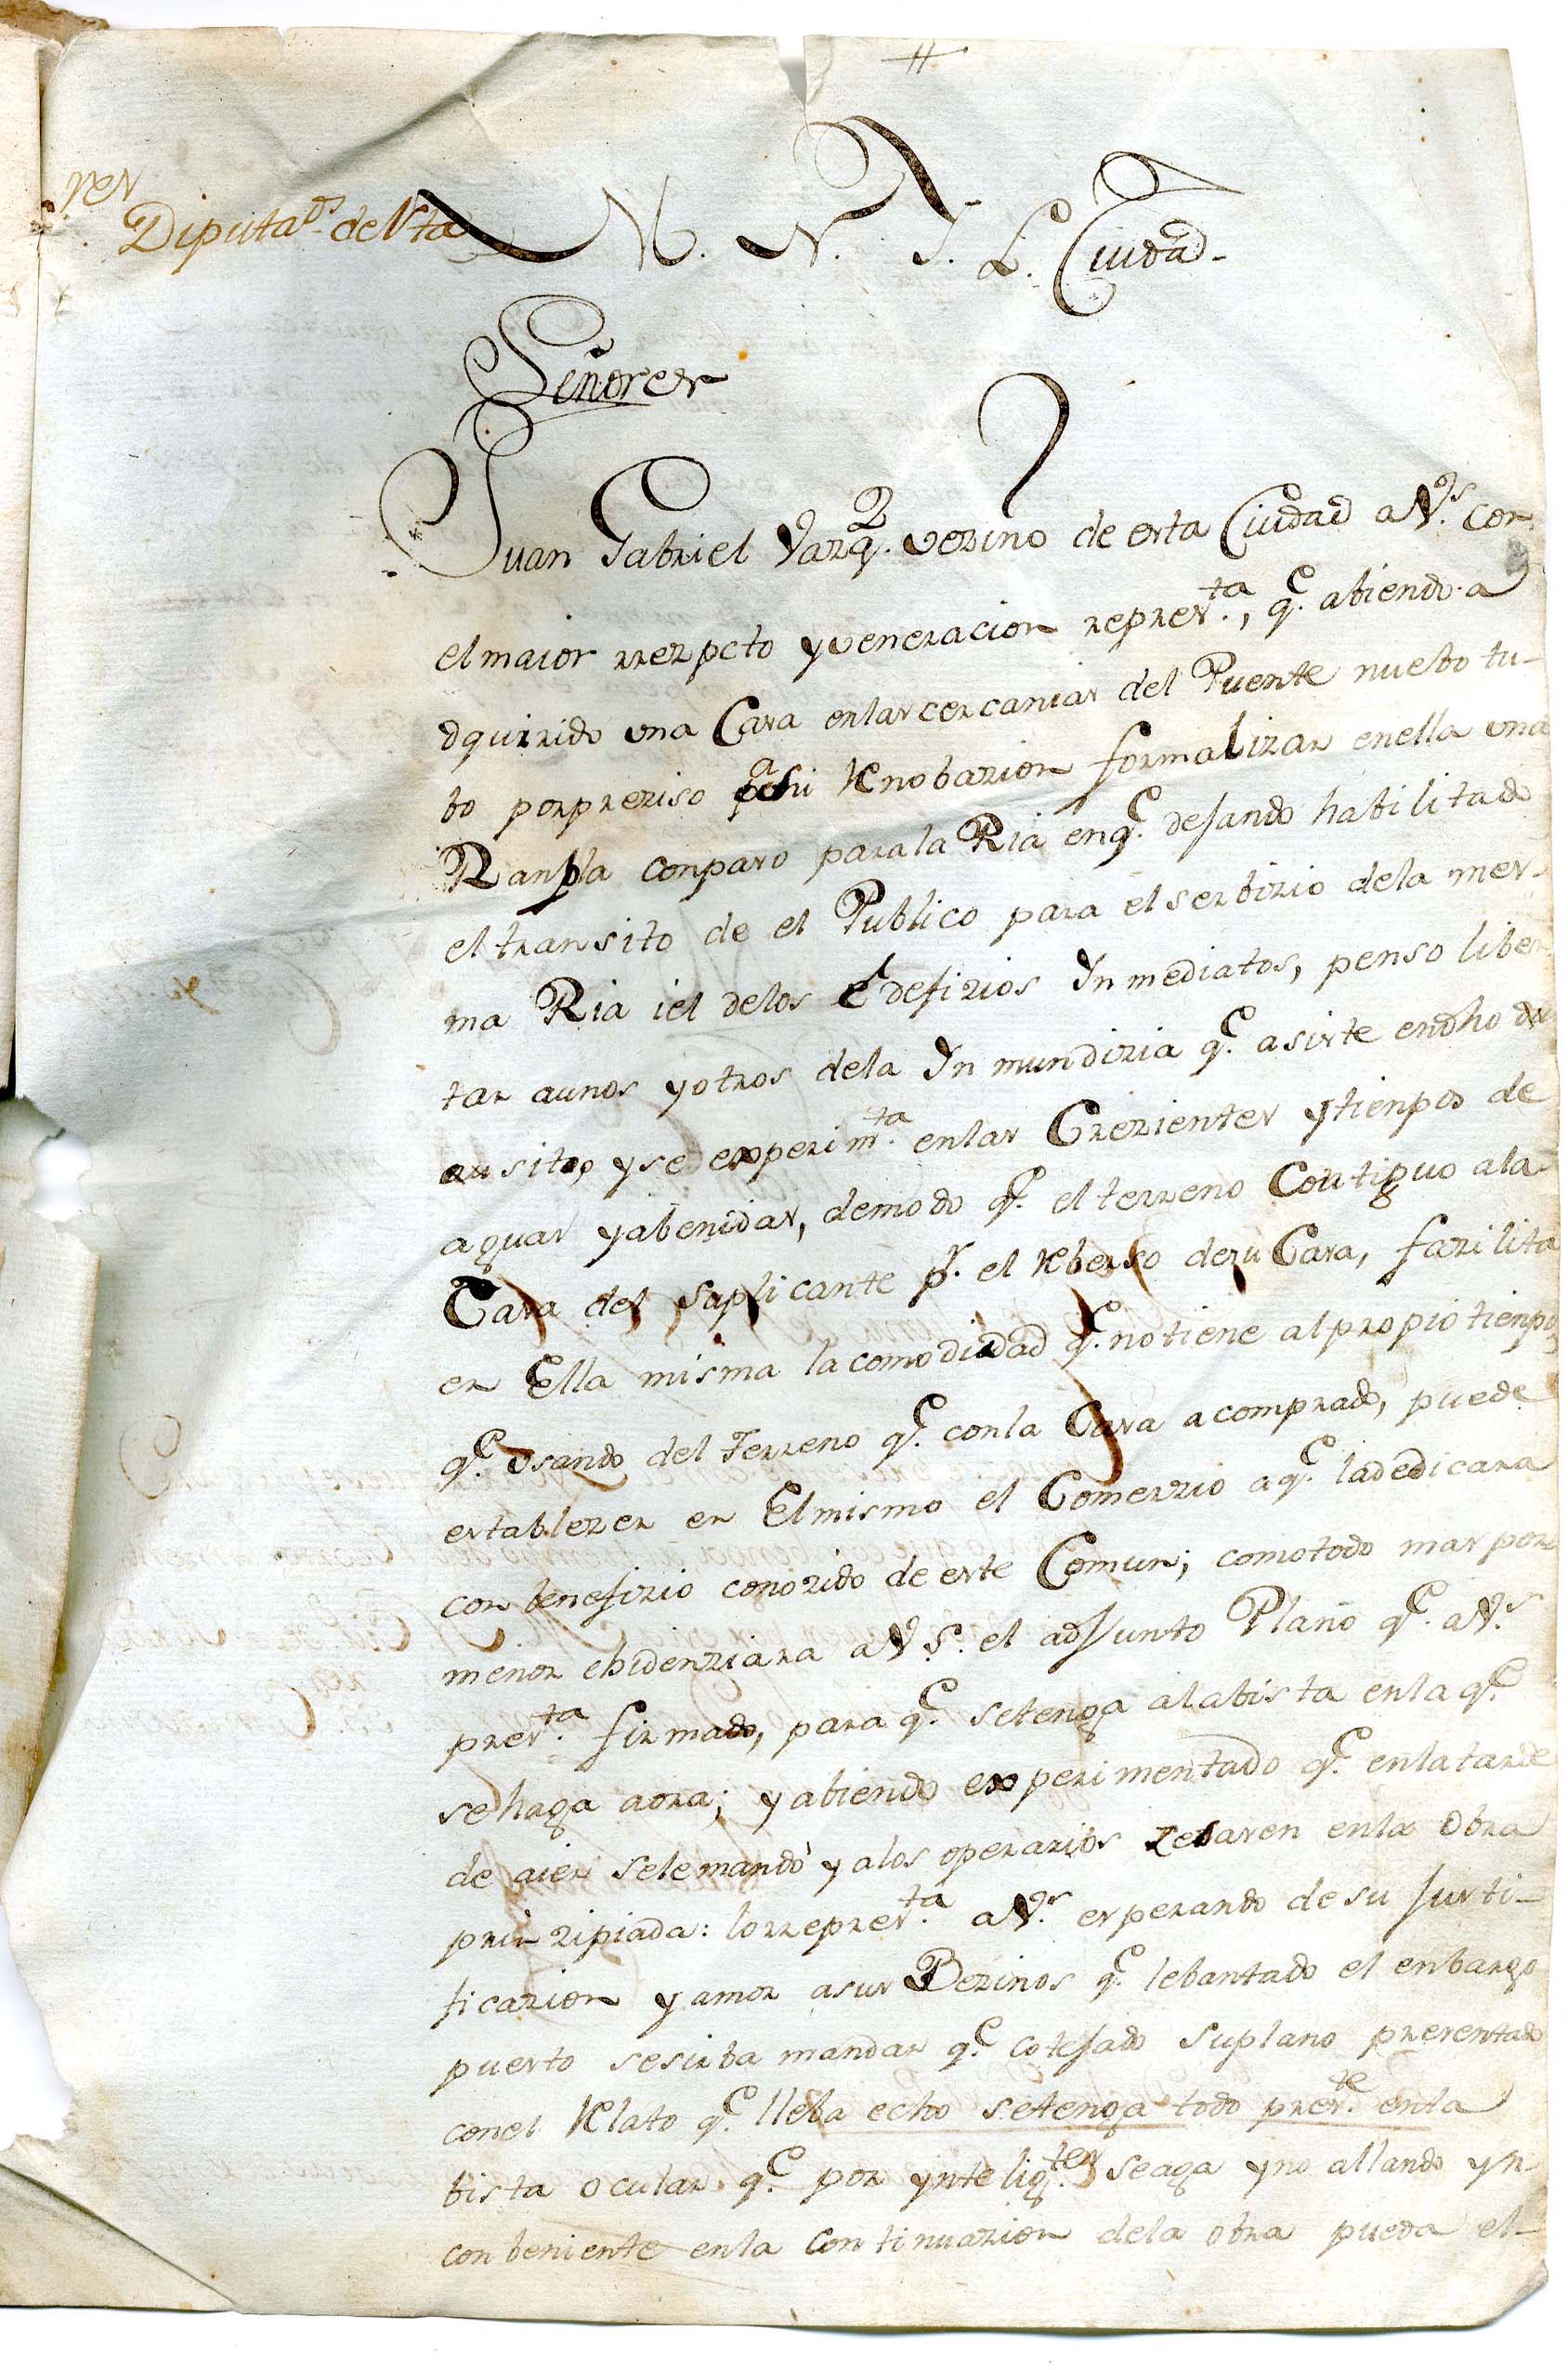 Diputados de Vta
M. N. I. L. Ciudad.
Señores
Juan Gabriel Vazqz. vezino de esta Ciudad a V.s con
el maior rrezpcto y veneracion repres.ta, q.e abiendo a
dquirido una Casa enlas cercanias del Puente nuebo tu-
bo porpreziso pa su Renobazion formalizar enella una
Ranpla conpaso parala Ria enq.e dejando habilitado
eltransito de el Publico para elserbizio dela mes-
ma Ria iel delos Edefizios Inmediatos, penso liber
tar aunos yotros dela Inmundizia q.e asiste endho
ysedexperim.ta enlas Crezientes ytienpos de
aguas yabenidas, demodo q.e el terreno Contiguo ala
Casa del suplicante p.r el Reberso dezu Casa, fazilita
en Ella misma lacomodidad q.e notiene alpropio tienpo,
q.e Usando del Terreno q.e conla Casa acomprado, puede
establezer en Elmismo el Comerzio aq.e ladedicara
con benefizio conozido de este Comun; comotodo mas por
menor ebidenziara aV.S. el adjunto Plano q.e aV.s
pres.ta firmado, para q.e setenga alabista enla q.e
sehaga aora; yabiendo experimentado q.e enlatarde
de aier selemandó yalos operarios zesasen enla Obra
prinzipiada: lorrepres.ta aV.s esperando desu justi-
ficazion yamor asus Bezinos q.e lebantado el enbargo
puesto sesirba mandar q.e cotejado suplano presentado
conel Relato q.e lleba echo setenga todo pres.te enla
bista ocular q.e por yntelig.tes seaga yno allando yn-
conbeniente enla Continuazion dela obra pueda el-